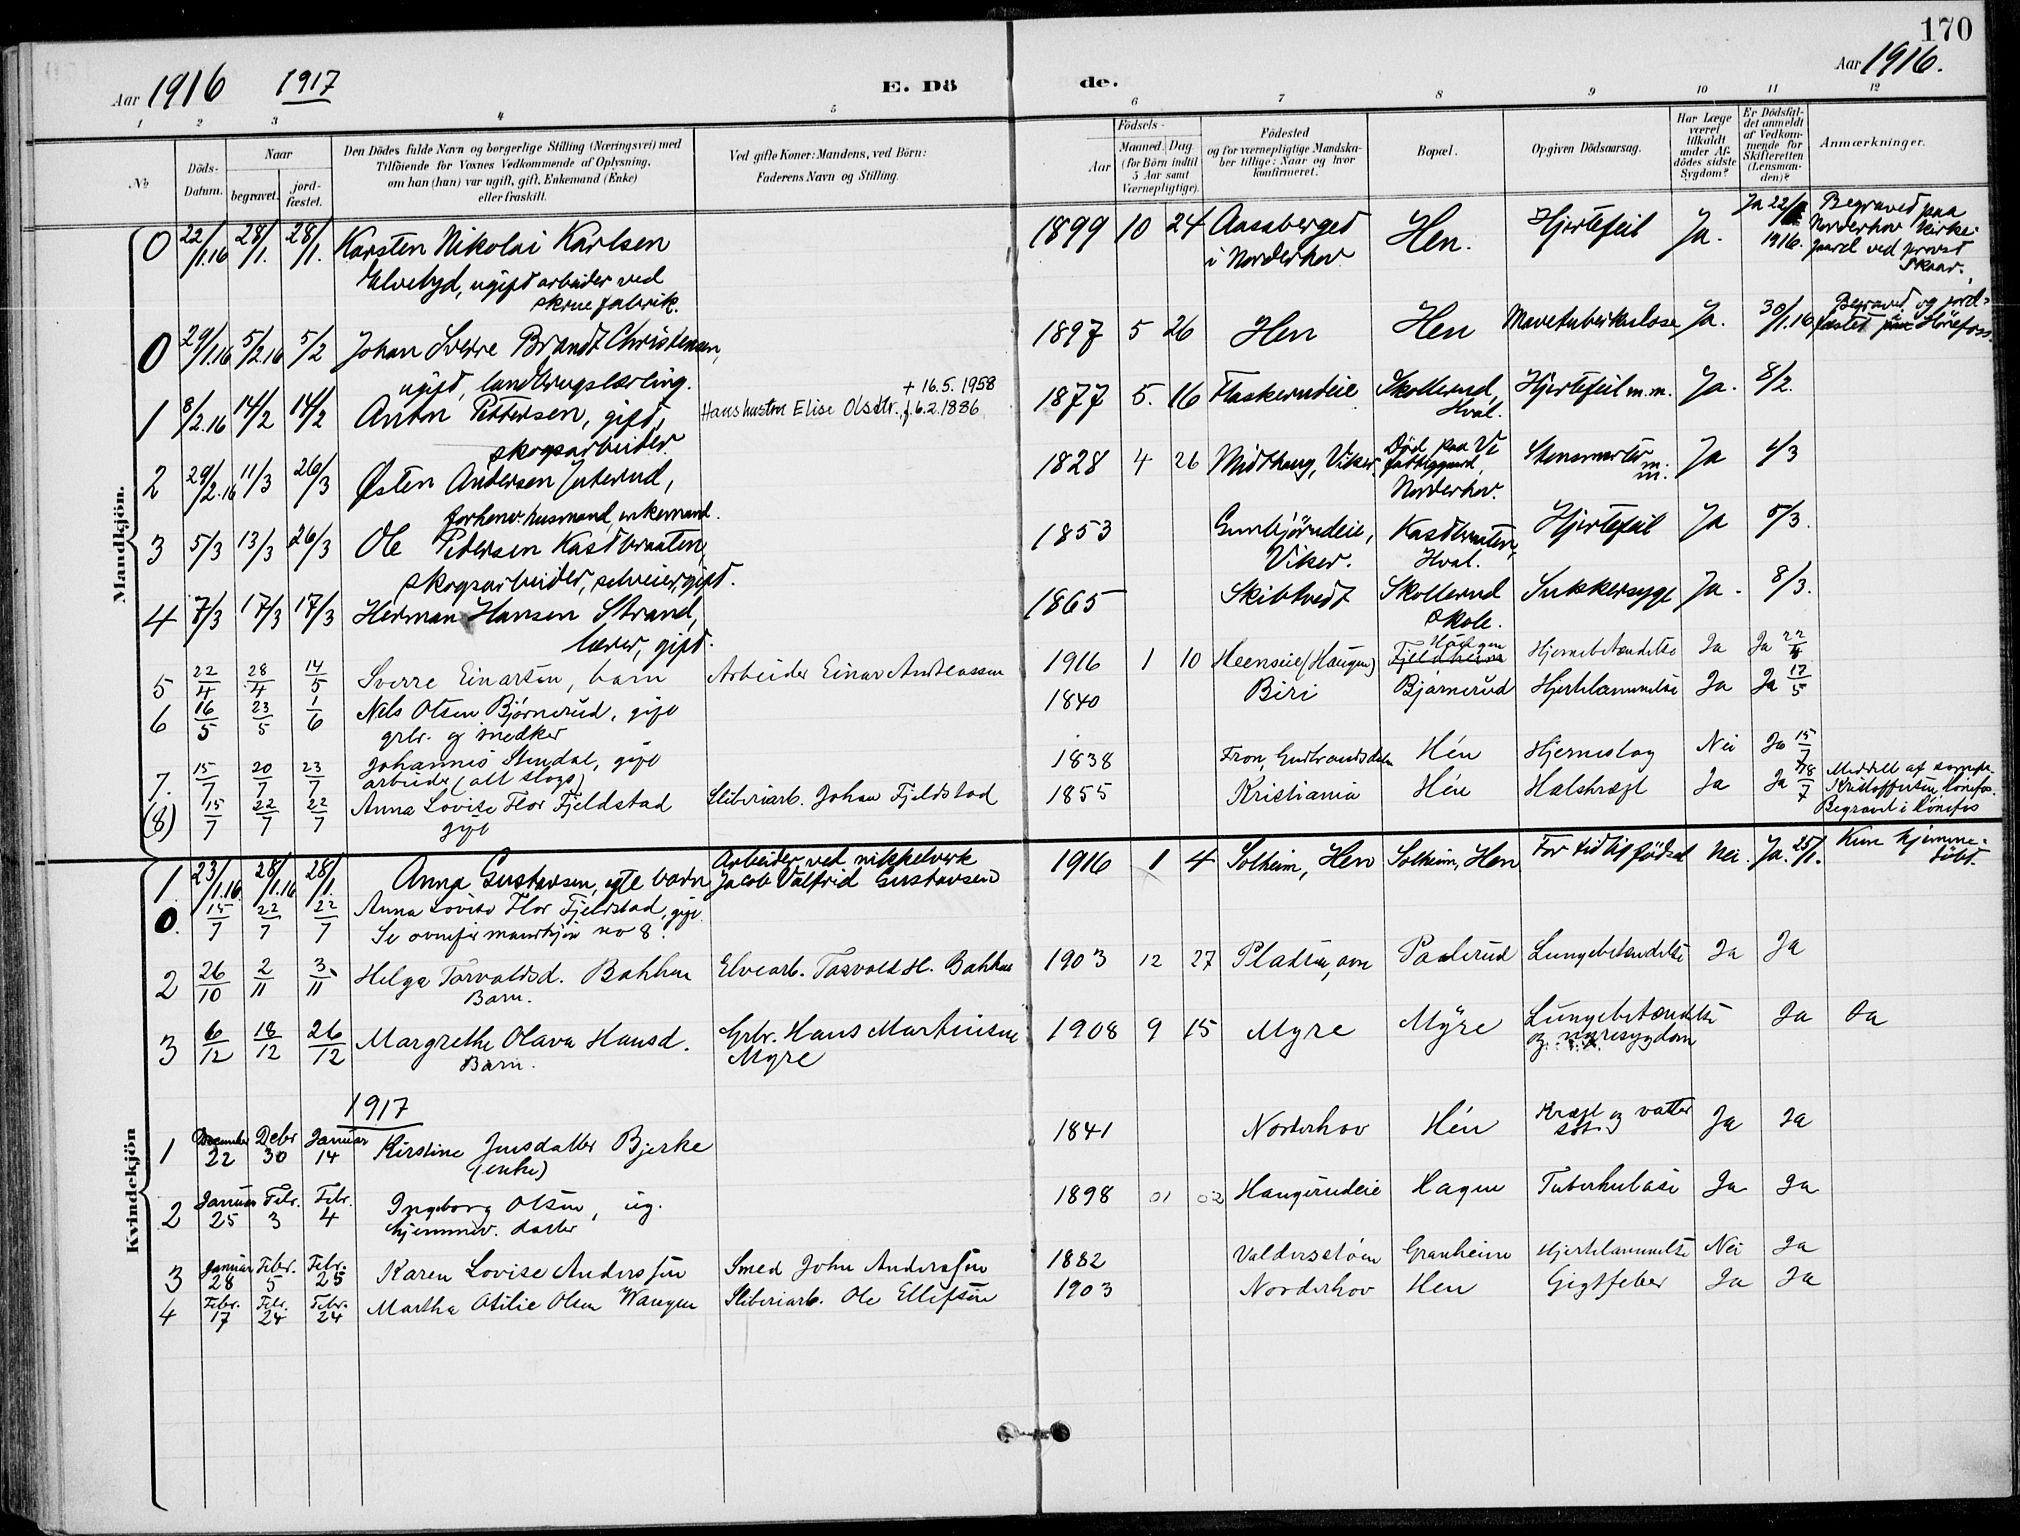 170
Aar 1916 1917 E. Dö de. Aar 1916.
1 2 3 4 5 6 7 8 9 10 11 12
No. Döds-Datum. Naar begravet. jordfæstet.
Den Dödes fulde Navn og borgerlige Stilling (Næringsvei) med
Tilföiende for Voxnes Vedkommende af Oplysning,
om han (hun) var ugift, gift, Enkemand (Enke)
eller fraskilt.
Ved gifte Koner: Mandens, ved Börn:
Faderens Navn og Stilling.
Födsels- Aar Maaned. Dag (for Börn indtil 5 Aar samt Værnepligtige).
Födested og for værnepligtige Mandskaber tillige: Naar og hvor konfirmeret.
Bopæl.
Opgiven Dödsaarsag.
Har Læge været tilkaldt under Afdödes sidste Sygdom?
Er Dödsfaldet anmeldt af Vedkommende for Skifteretten (Lensmanden)?
Anmærkninger.
Mandkjön.
0 22/1.16 28/1. 28/1. Karsten Nikolai Karlsen 1899 10 24 Aassberget Hen. Hjertefeil Ja. Ja 22/1 1916. Begraved paa
Elvebyd, ugift arbeider ved i Norderhov Norderhov kirke-
skruefabrik. gaard ved provst
Skaar.
0 29/1.16 5/2.16 5/2 Johan Sverre Brandt Christensen, 1897 5 26 Hen Hen Mavetuberkulose Ja. 30/1.16 Begraved og jord-
ugift, landbrugslærling. fæstet paa Hönefoss.
1 8/2.16 14/2 14/2 Anton Pettersen, gift, Hans hustru Elise Olsdtr. f. 6.2.1886 + 16.5.1958 1877 5. 16 Flaskerudeie Skollerud, Hjertefeil m.m. Ja. 8/2.
skogsarbeider Hval.
2 29/2.16 11/3 26/3 Østen Andersen Juterud, 1828 4 26 Midthaug, Viker. Död paa Ve fattiggaard, Ja 4/3
forhenv. husmand, enkemand. Norderhov.
3 5/3 13/3 26/3 Ole Pedersen Kastbraaten, 1853 Gunbjörnudeie, Kastbraaten, Hjertefeil Ja 5/3.
skogsarbeider, selveier, gift. Viker. Hval.
4 7/3 17/3 17/3 Herman Hansen Strand, 1865 Skibtvedt Skollerud Sukkersyge Ja. 8/3.
lærer, gift. skole.
5 22/4 28/4 14/5 Sverre Einarsen, barn Arbeider Einar Andreassen 1916 1 10 Heenseie (Haugen) Haugen Hjernebetændelse Ja Ja 22/4
6 16/5 23/5 1/6 Nels Olsen Bjørnerud, gift 1840 Biri Bjørnerud Hjertelammelse Ja Ja 17/5
grbr. og snedker
7. 15/7 20/7 23/7 Johannis Stendal, gift 1838 Fron, Gudbrandsdalen Hén Hjerneslag Nei Ja 15/7
arbeider (alt slags)
(8) 15/7 22/7 22/7 Anna Lovise Flor Fjeldstad Sliberiarb. Johan Fjeldstad 1855 Kristiania Hén Halskræft Ja Ja 18/7 Meddelt af sognepr.
gift Kristoffersen Hönefos.
Begravet i Hönefos
Kvindekjön
1. 23/1.16. 28/1.16 28/1. Anna Gustavsen, egte barn Arbeider ved nikkelverk 1916 1 4 Solheim, Hen Solheim, Hen For tidlig födsel Nei. Ja. 25/1. Kun hjemme-
Jacob Valfrid Gustavsen döbt.
0. 15/7 22/7 22/7 Anna Lovise Flor Fjeldstad, gift.
Se ovenfor mandkjøn no 8.
2 26/10 2/11 3/11 Helga Torvaldsd. Bakken Elvearb. Torvald H. Bakken 1903 12 27 Pladsen, ovn Paalerud Lungebetændelse Ja Ja
Barn.
3 6/12 18/12 26/12 Margrethe Olava Hansd. Grbr. Hans Martinsen 1908 9 15 Myre Myre Lungebetændelse Ja Ja
Barn. Myre og nyresygdom
1917
1 December 22 Debr 30 Januar 14 Kirstine Jensdatter Bjerke 1841 Norderhov Hén Kræft og vatter Ja Ja
(enke) sot
2 Januar 25 Febr. 3 Febr. 4 Ingeborg Olsen, ug. 1898 01 02 Haugerudeie Hagen Tuberkulose Ja Ja
hjemmev. datter
3 Januar 28 Febr. 5 Febr. 25 Karen Lovise Anderssen Smed John Anderssen 1882 Valdersstøen Granheim Hjertelammelse Nei Ja
4 Febr. 17 Febr. 24 Febr. 24 Martha Otilie Olsen Waagen Sliberiarb. Ole Ellefsen 1903 Norderhov Hen Gigtfeber Ja Ja